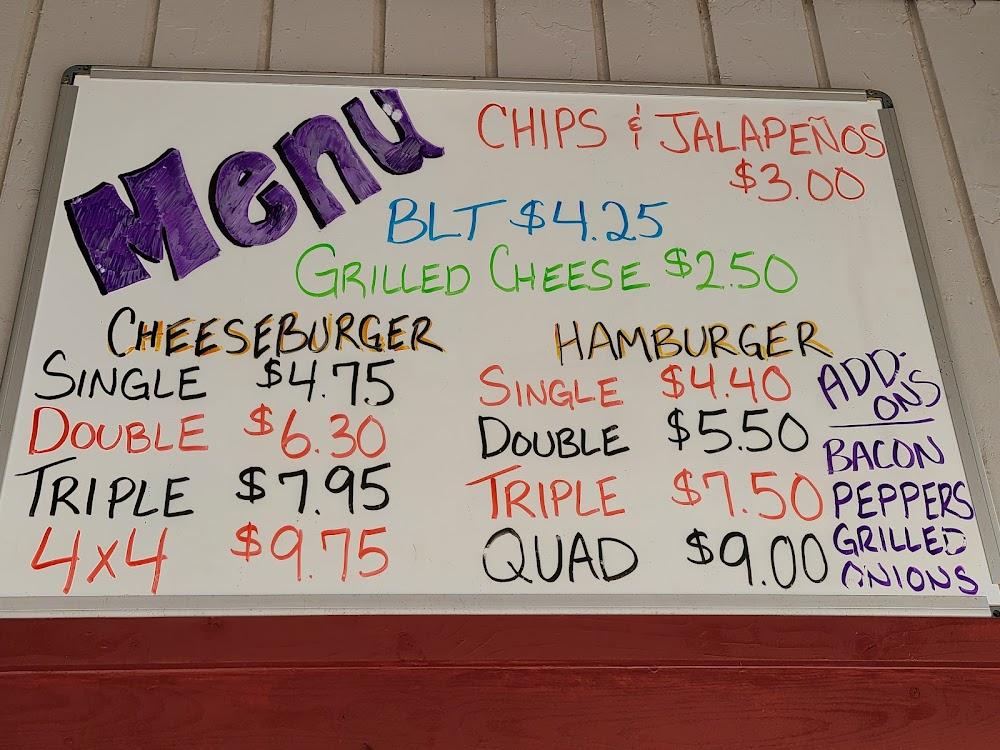 Menu
CHIPS & JALAPEÑOS
$3.00
BLT $4.25
GRILLED CHEESE $2.50
CHEESEBURGER
SINGLE $4.75
DOUBLE $6.30
TRIPLE $7.95
4x4 $9.75
HAMBURGER
SINGLE $4.40
DOUBLE $5.50
TRIPLE $7.50
QUAD $9.00
ADD-
ONS
BACON
PEPPERS
GRILLED
ONIONS